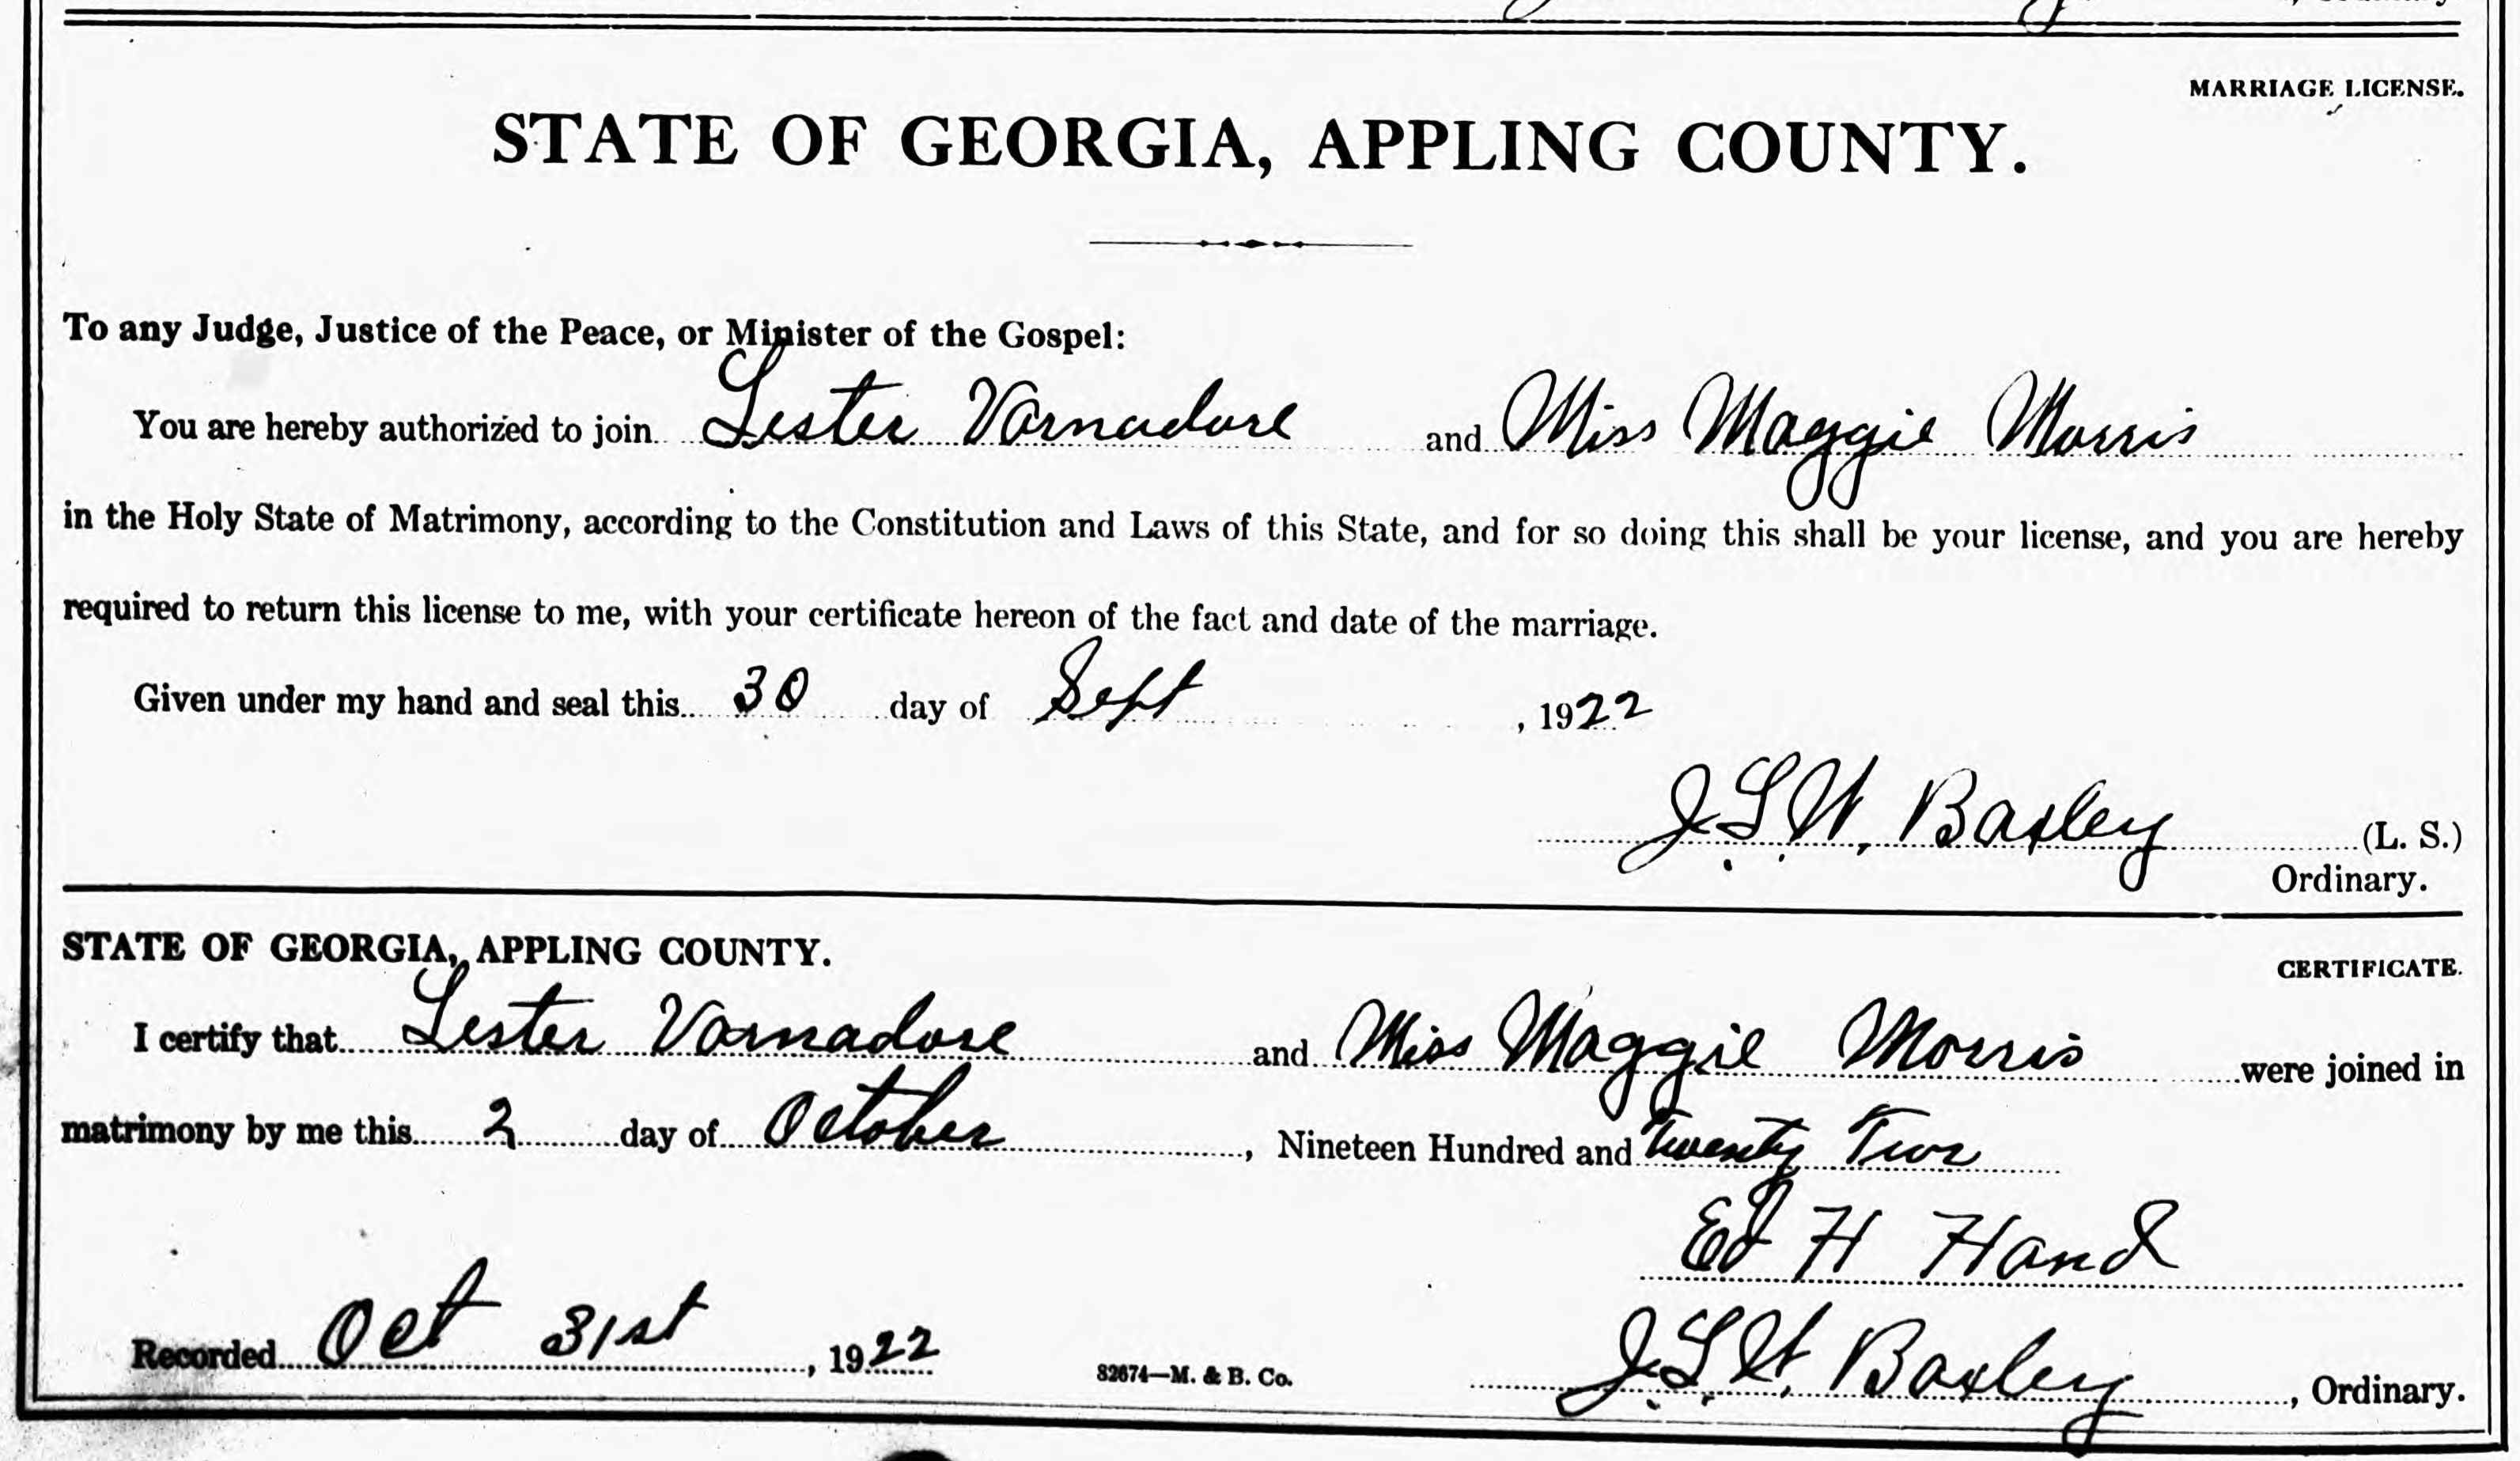 MARRIAGE LICENSE.
STATE OF GEORGIA, APPLING COUNTY.
To any Judge, Justice of the Peace, or Minister of the Gospel:
You are hereby authorized to join Lester Varnadore and Miss Maggie Morris
in the Holy State of Matrimony, according to the Constitution and Laws of this State, and for so doing this shall be your license, and you are hereby
required to return this license to me, with your certificate hereon of the fact and date of the marriage.
Given under my hand and seal this 30 day of Sept , 1922
J. L. W. Baxley (L. S.)
Ordinary.
STATE OF GEORGIA, APPLING COUNTY.
CERTIFICATE.
I certify that Lester Varnadore and Miss Maggie Morris were joined in
matrimony by me this 2 day of October , Nineteen Hundred and Twenty Two
Ed H Hand
Recorded Oct 31st , 1922 82674—M. & B. Co. J. L. W. Baxley , Ordinary.